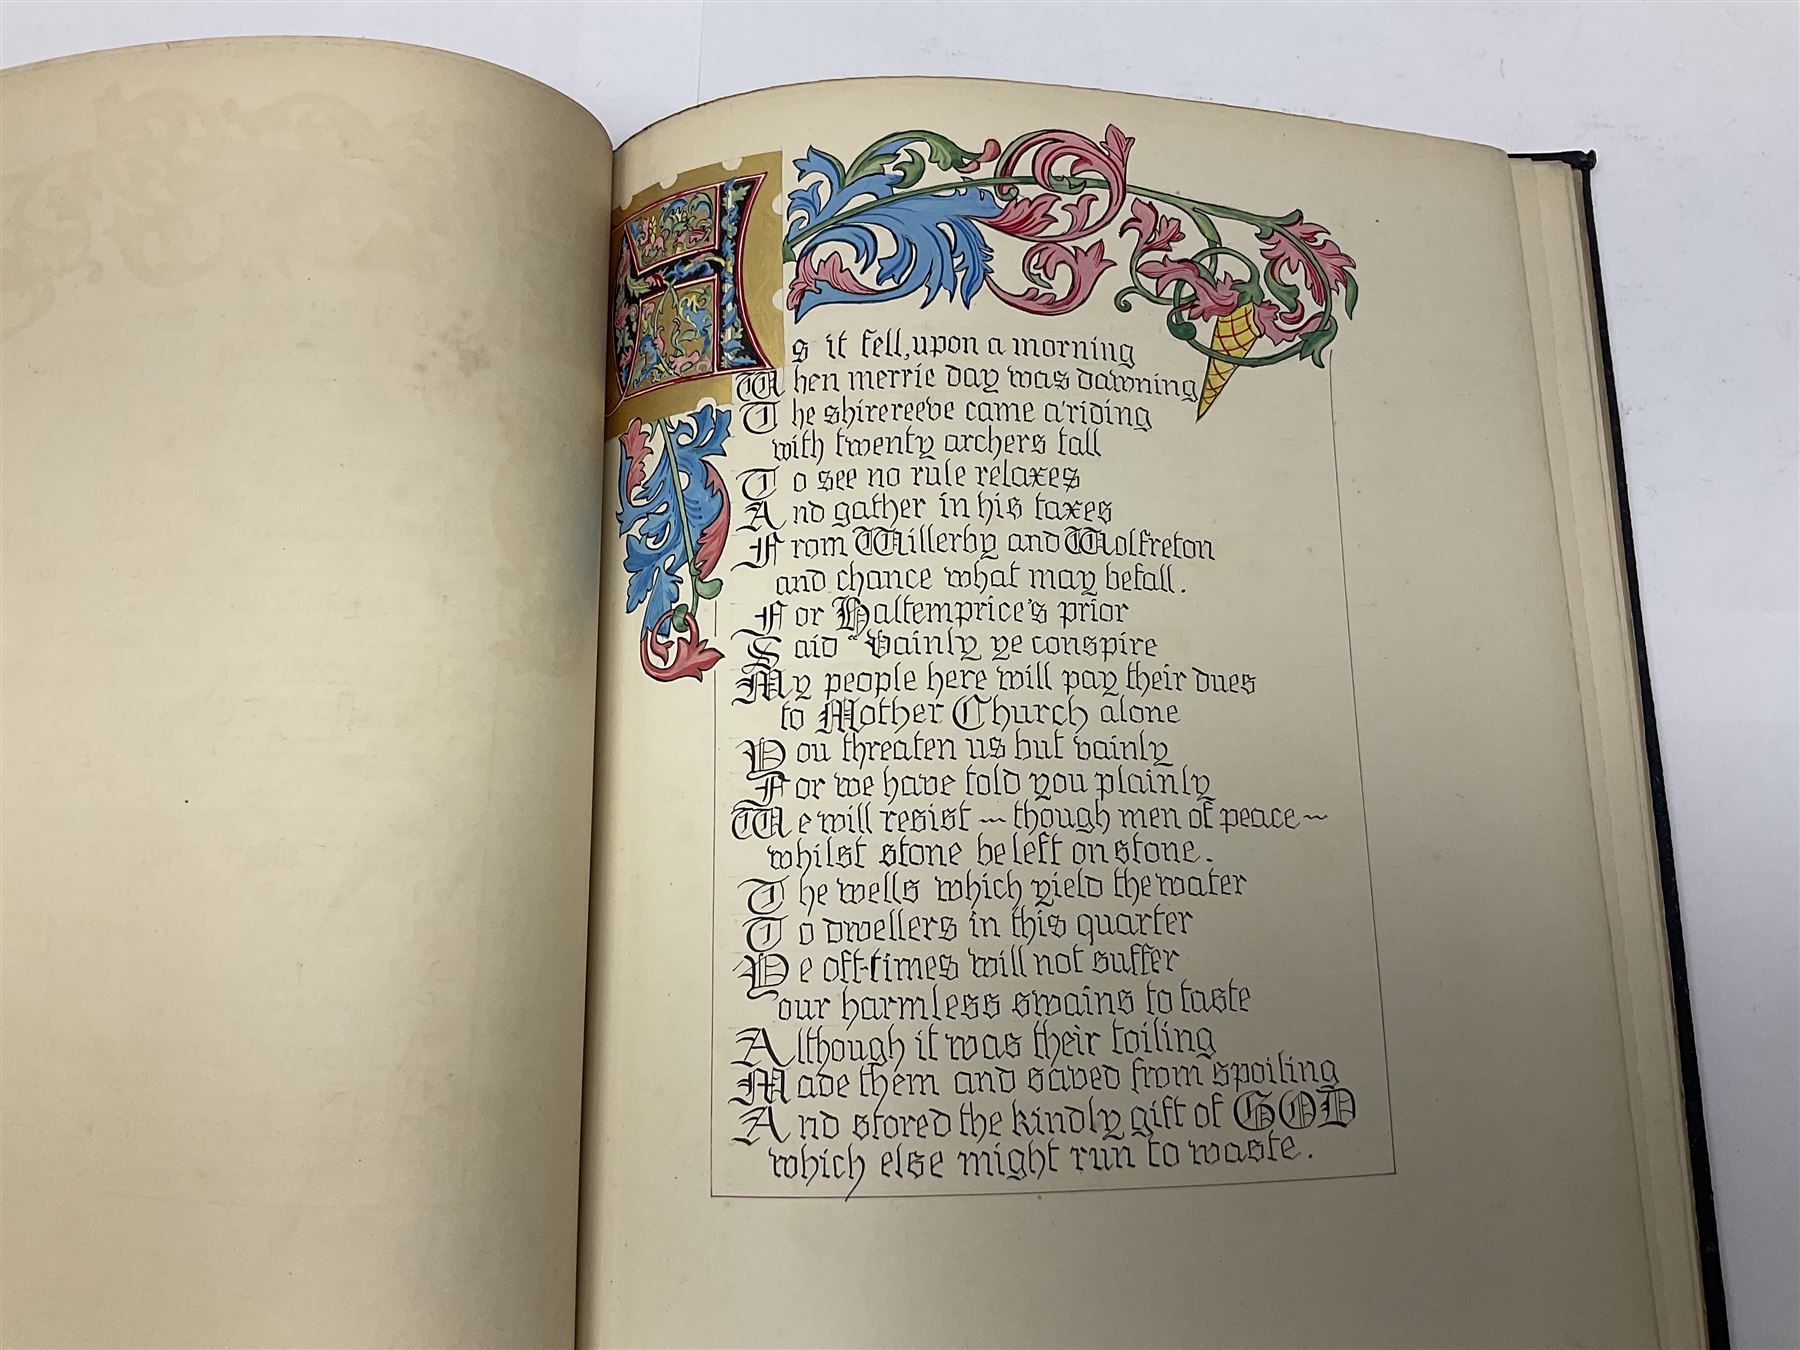 As it fell, upon a morning
When merrie day was dawning
The shirereeve came a'riding
with twenty archers tall
To see no rule relaxes
And gather in his taxes
From Willerby and Wolfreton
and chance what may befall.
For Haltemprice's prior
Said "Vainly ye conspire
My people here will pay their dues
to Mother Church alone
You threaten us but vainly
For we have told you plainly
We will resist ~ though men of peace ~
whilst stone be left on stone.
The wells which yield the water
To dwellers in this quarter
Ye oft-times will not suffer
our harmless swains to taste
Although it was their toiling
Made them and saved from spoiling
And stored the kindly gift of GOD
which else might run to waste.